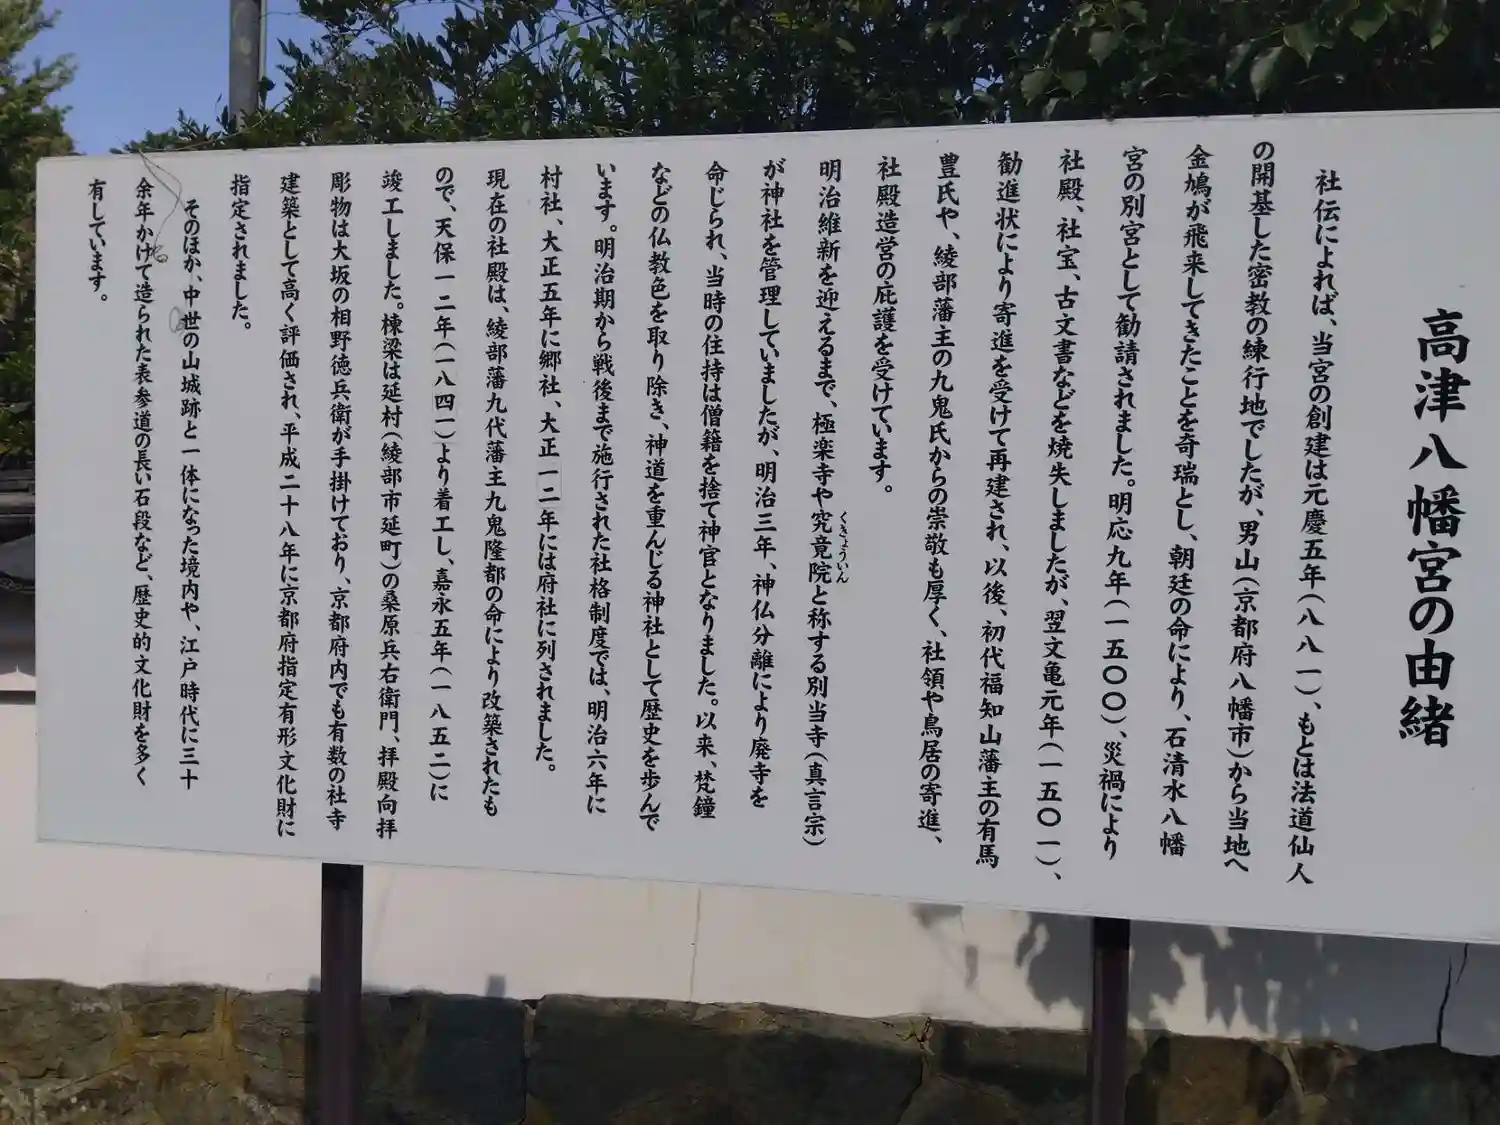 高津八幡宮の由緒
社伝によれば、当宮の創建は元慶五年(八八一)、もとは法道仙人
の開基した密教の練行地でしたが、男山(京都府八幡市)から当地へ
金鳩が飛来してきたことを奇瑞とし、朝廷の命により、石清水八幡
宮の別宮として勧請されました。明応九年(一五〇〇)、災禍により
社殿、社宝、古文書などを焼失しましたが、翌文亀元年(一五〇一)、
勧進状により寄進を受けて再建され、以後、初代福知山藩主の有馬
豊氏や、綾部藩主の九鬼氏からの崇敬も厚く、社領や鳥居の寄進、
社殿造営の庇護を受けています。
明治維新を迎えるまで、極楽寺や究竟院と称する別当寺(真言宗)
くきょういん
が神社を管理していましたが、明治三年、神仏分離により廃寺を
命じられ、当時の住持は僧籍を捨て神官となりました。以来、梵鐘
などの仏教色を取り除き、神道を重んじる神社として歴史を歩んで
います。明治期から戦後まで施行された社格制度では、明治六年に
村社、大正五年に郷社、大正一二年には府社に列されました。
現在の社殿は、綾部藩九代藩主九鬼隆都の命により改築されたも
ので、天保一二年(一八四一)より着工し、嘉永五年(一八五二)に
竣工しました。棟梁は延村(綾部市延町)の桑原兵右衛門、拝殿向拝
彫物は大坂の相野徳兵衛が手掛けており、京都府内でも有数の社寺
建築として高く評価され、平成二十八年に京都府指定有形文化財に
指定されました。
そのほか、中世の山城跡と一体になった境内や、江戸時代に三十
余年かけて造られた表参道の長い石段など、歴史的文化財を多く
有しています。